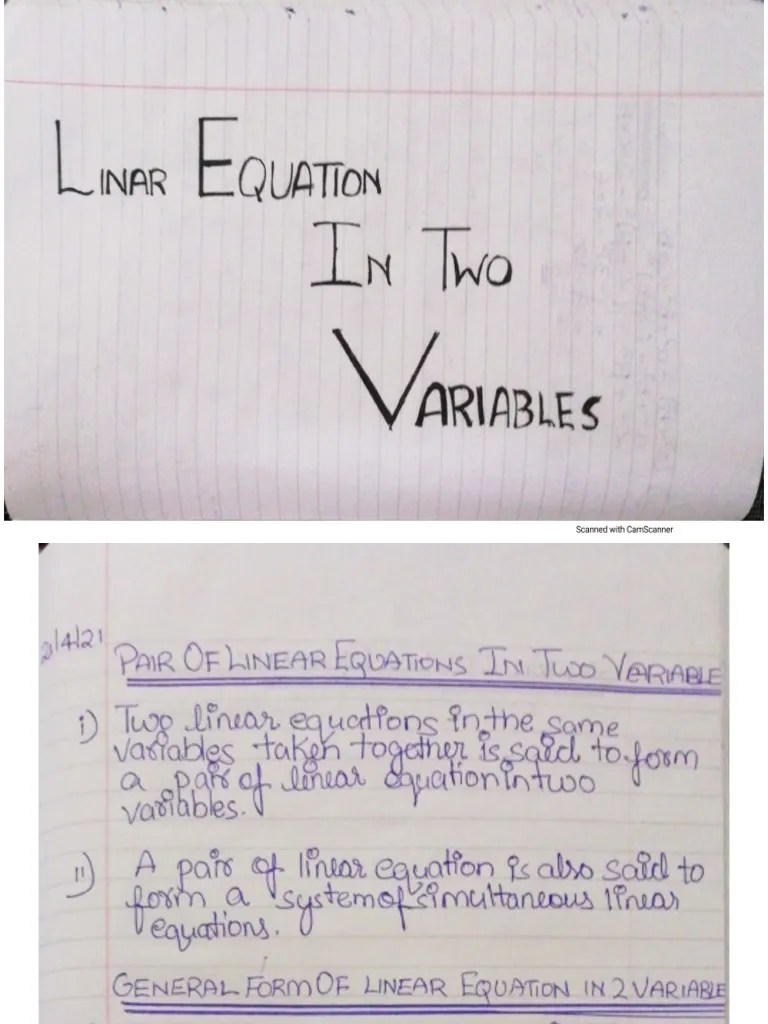 LINAR EQUATION
IN TWO
VARIABLES
Scanned with CamScanner
21/4/21
PAIR OF LINEAR EQUATIONS IN TWO VARIABLE
i) Two linear equations in the same
variables taken together is said to form
a pair of linear equation in two
variables.
ii) A pair of linear equation is also said to
form a system of simultaneous linear
equations.
GENERAL FORM OF LINEAR EQUATION IN 2 VARIABLE